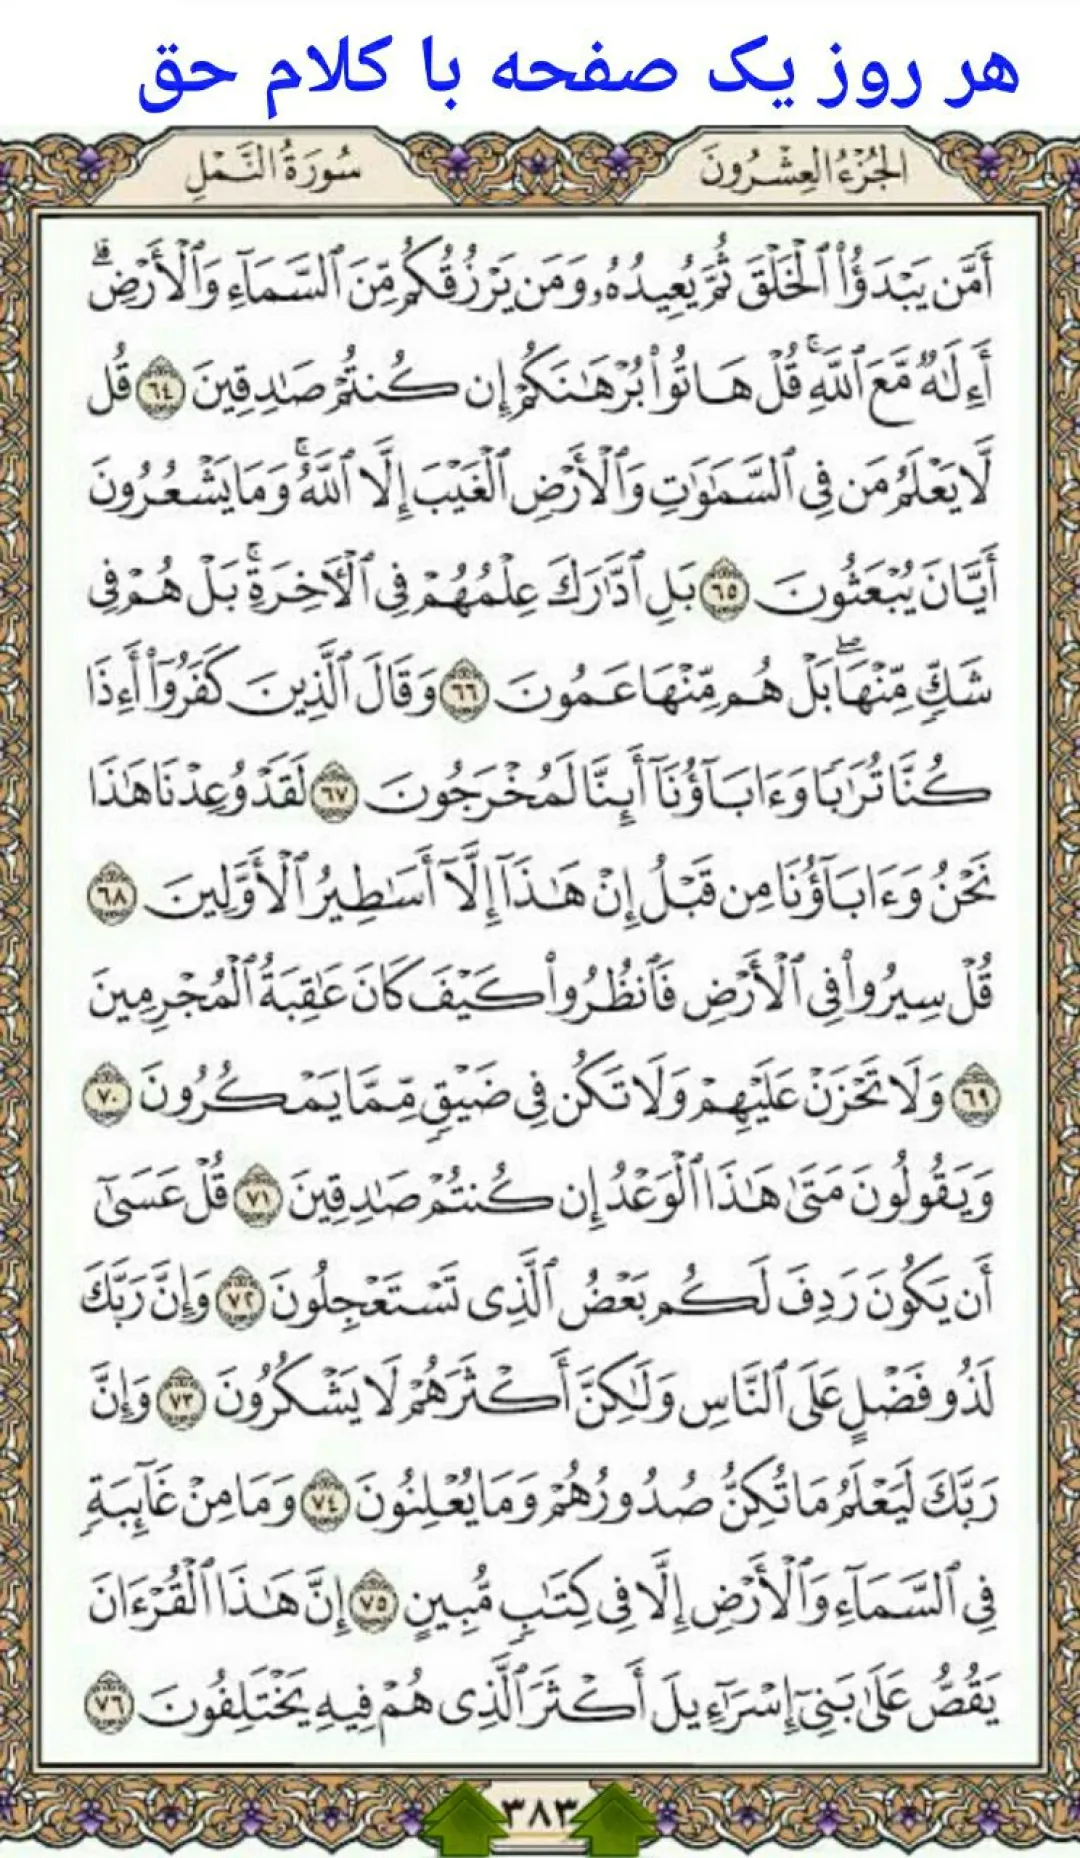 هر روز یک صفحه با کلام حق
الجُزْءُ العِشْرُونَ
سُورَةُ النَّمْلِ
أَمَّن يَبْدَؤُا۟ ٱلْخَلْقَ ثُمَّ يُعِيدُهُۥ وَمَن يَرْزُقُكُم مِّنَ ٱلسَّمَآءِ وَٱلْأَرْضِ ۗ
أَءِلَـٰهٌ مَّعَ ٱللَّهِ ۚ قُلْ هَاتُوا۟ بُرْهَـٰنَكُمْ إِن كُنتُمْ صَـٰدِقِينَ ٦٤ قُل
لَّا يَعْلَمُ مَن فِى ٱلسَّمَـٰوَٰتِ وَٱلْأَرْضِ ٱلْغَيْبَ إِلَّا ٱللَّهُ ۚ وَمَا يَشْعُرُونَ
أَيَّانَ يُبْعَثُونَ ٦٥ بَلِ ٱدَّٰرَكَ عِلْمُهُمْ فِى ٱلْـَٔاخِرَةِ ۚ بَلْ هُمْ فِى
شَكٍّ مِّنْهَا ۖ بَلْ هُم مِّنْهَا عَمُونَ ٦٦ وَقَالَ ٱلَّذِينَ كَفَرُوٓا۟ أَءِذَا
كُنَّا تُرَٰبًا وَءَابَآؤُنَآ أَئِنَّا لَمُخْرَجُونَ ٦٧ لَقَدْ وُعِدْنَا هَـٰذَا
نَحْنُ وَءَابَآؤُنَا مِن قَبْلُ إِنْ هَـٰذَآ إِلَّآ أَسَـٰطِيرُ ٱلْأَوَّلِينَ ٦٨
قُلْ سِيرُوا۟ فِى ٱلْأَرْضِ فَٱنظُرُوا۟ كَيْفَ كَانَ عَـٰقِبَةُ ٱلْمُجْرِمِينَ
٦٩ وَلَا تَحْزَنْ عَلَيْهِمْ وَلَا تَكُن فِى ضَيْقٍ مِّمَّا يَمْكُرُونَ ٧٠
وَيَقُولُونَ مَتَىٰ هَـٰذَا ٱلْوَعْدُ إِن كُنتُمْ صَـٰدِقِينَ ٧١ قُلْ عَسَىٰٓ
أَن يَكُونَ رَدِفَ لَكُم بَعْضُ ٱلَّذِى تَسْتَعْجِلُونَ ٧٢ وَإِنَّ رَبَّكَ
لَذُو فَضْلٍ عَلَى ٱلنَّاسِ وَلَـٰكِنَّ أَكْثَرَهُمْ لَا يَشْكُرُونَ ٧٣ وَإِنَّ
رَبَّكَ لَيَعْلَمُ مَا تُكِنُّ صُدُورُهُمْ وَمَا يُعْلِنُونَ ٧٤ وَمَا مِنْ غَآئِبَةٍ
فِى ٱلسَّمَآءِ وَٱلْأَرْضِ إِلَّا فِى كِتَـٰبٍ مُّبِينٍ ٧٥ إِنَّ هَـٰذَا ٱلْقُرْءَانَ
يَقُصُّ عَلَىٰ بَنِىٓ إِسْرَٰٓءِيلَ أَكْثَرَ ٱلَّذِى هُمْ فِيهِ يَخْتَلِفُونَ ٧٦
٣٨٣